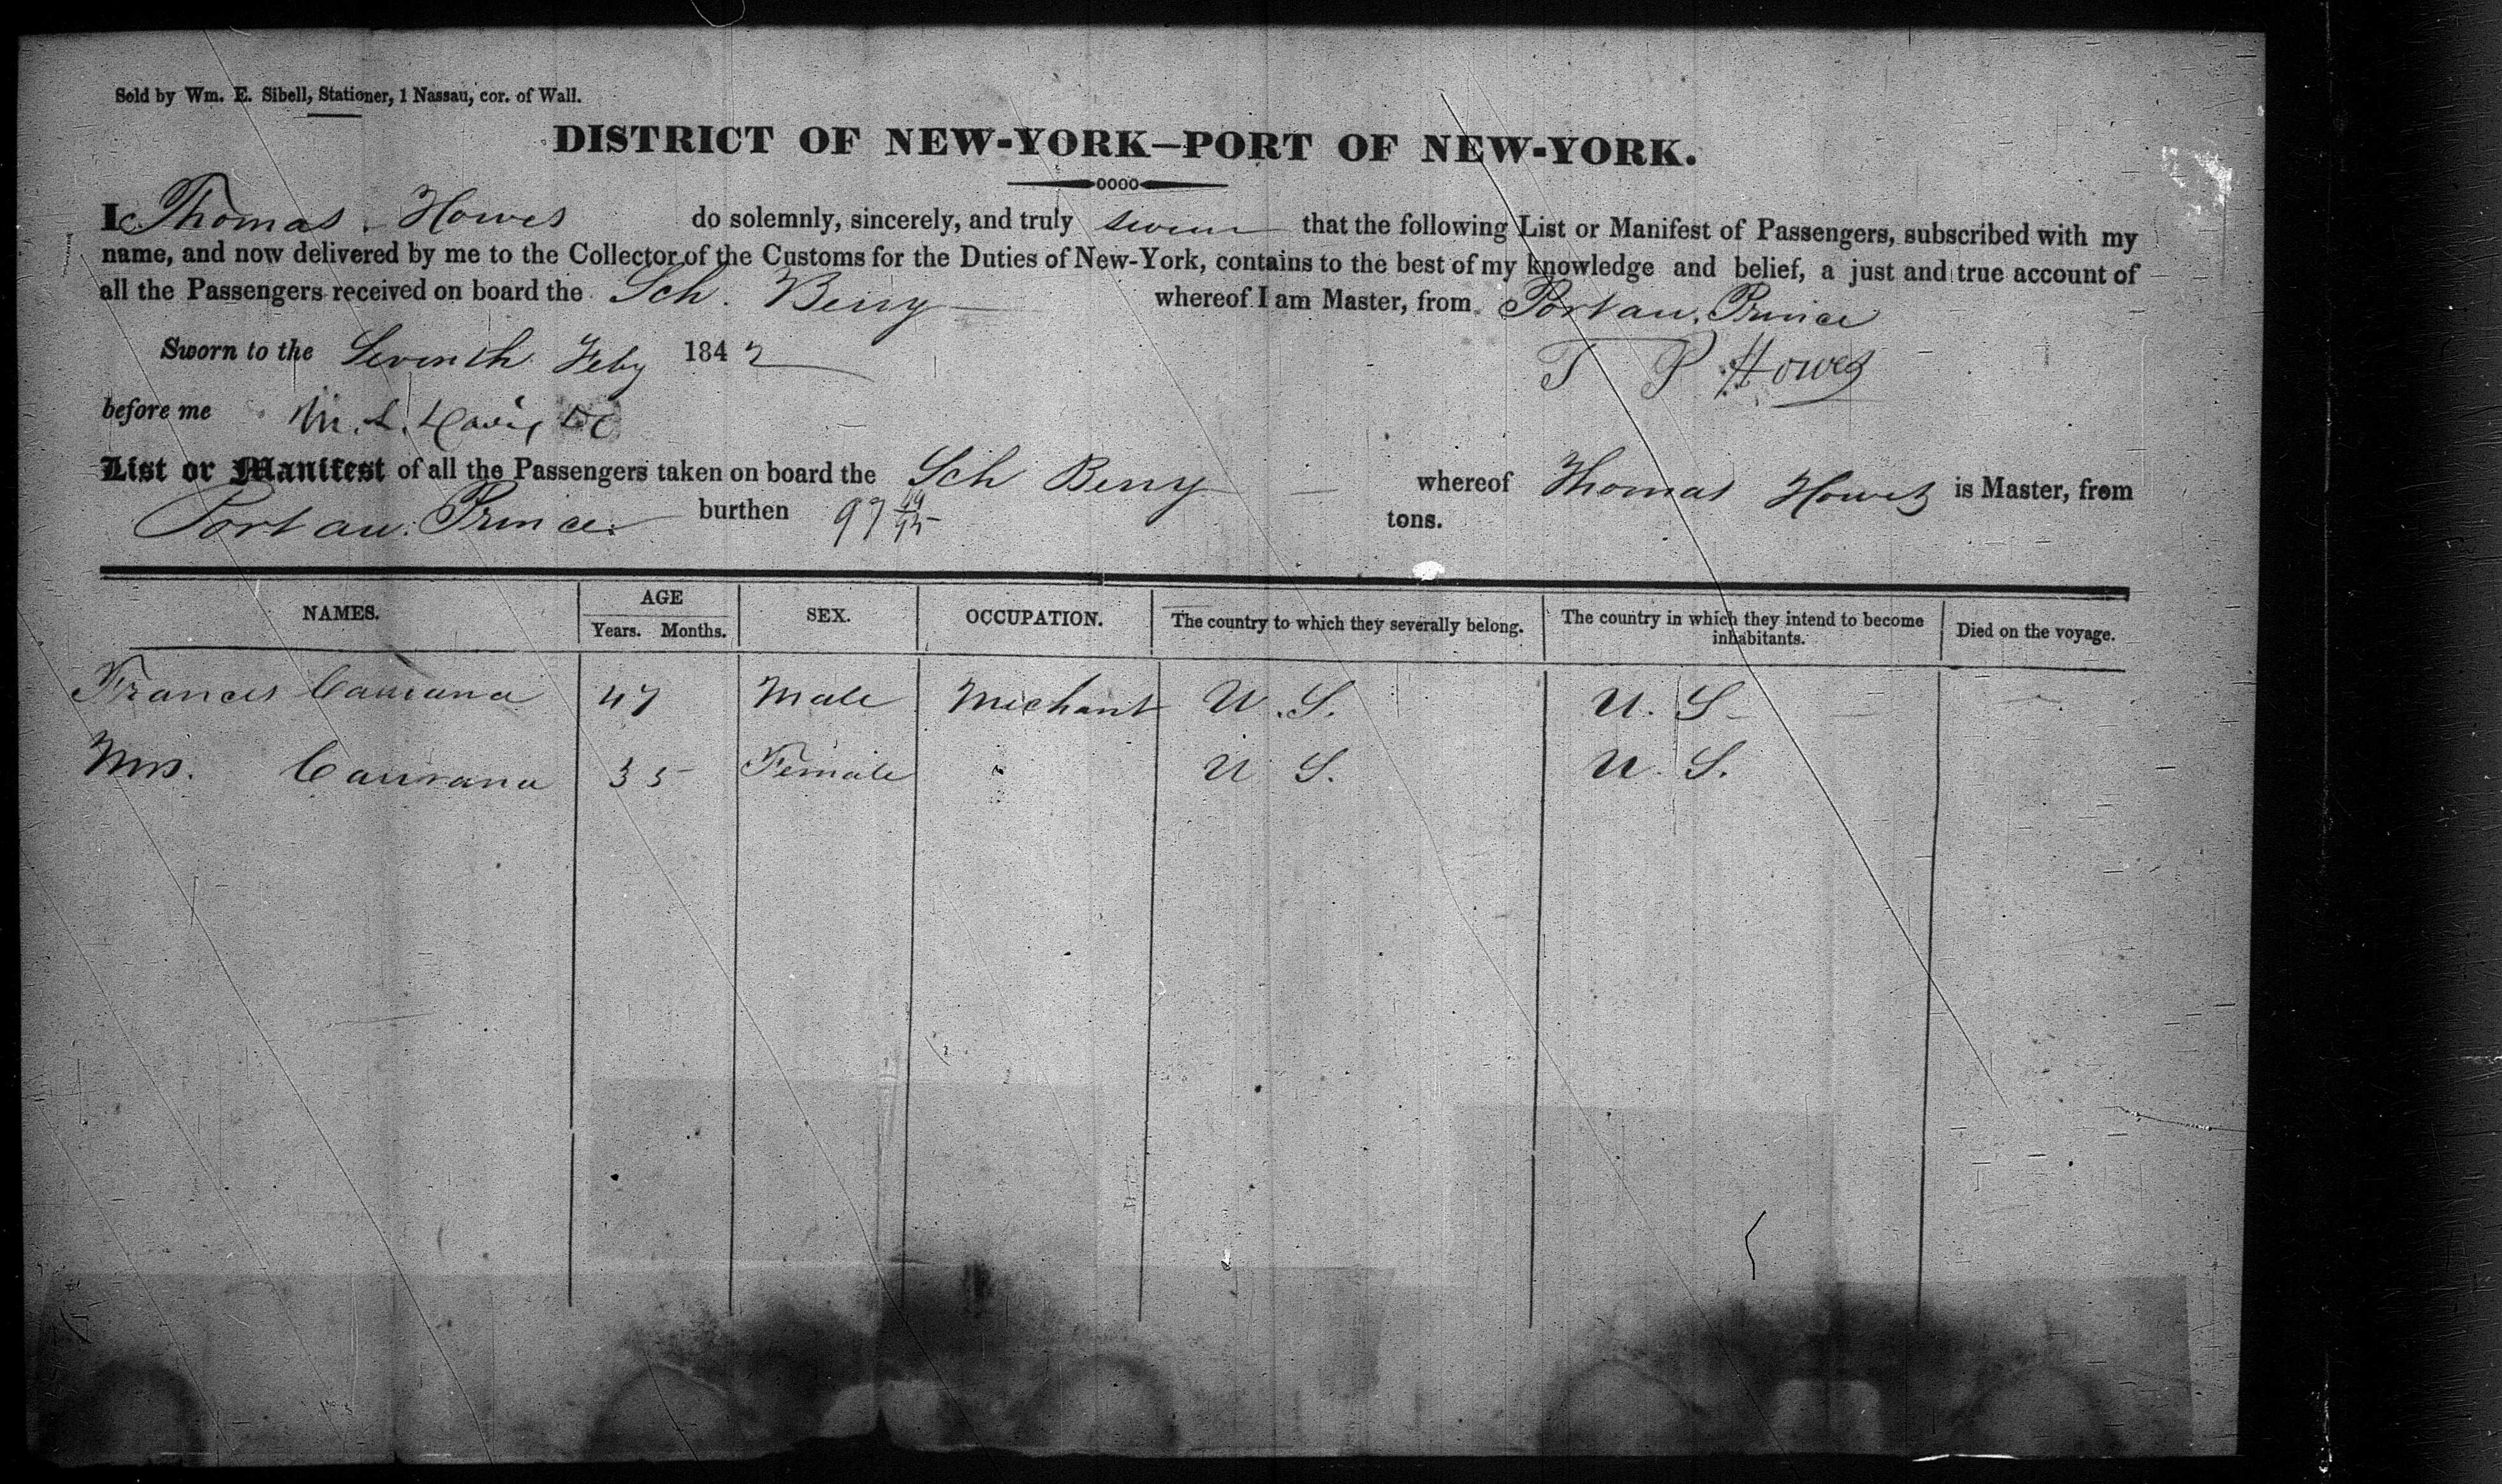 Sold by Wm. E. Sibell, Stationer, 1 Nassau, cor. of Wall.
DISTRICT OF NEW-YORK—PORT OF NEW-YORK.
I, Thomas Howes do solemnly, sincerely, and truly swear that the following List or Manifest of Passengers, subscribed with my
name, and now delivered by me to the Collector of the Customs for the Duties of New-York, contains to the best of my knowledge and belief, a just and true account of
all the Passengers received on board the Sch. Berry whereof I am Master, from Port au Prince
Sworn to the Seventh Feby 1842 T P Howes
before me M. L. Davis
List or Manifest of all the Passengers taken on board the Sch Berry whereof Thomas Howes is Master, from
Port au Prince burthen 97 49/95 tons.
NAMES. AGE Years. Months. SEX. OCCUPATION. The country to which they severally belong. The country in which they intend to become inhabitants. Died on the voyage.
Frances 47 Male Merchant U. S. U. S
Mrs. 35 Female U S. U. S.